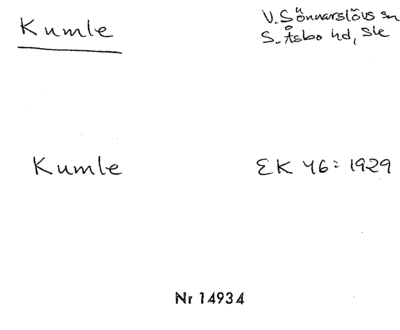 Kumle
V. Sönnarslövs sn
S. Åsbo hd, Sk
Kumle
EK 46: 1929
Nr 14934